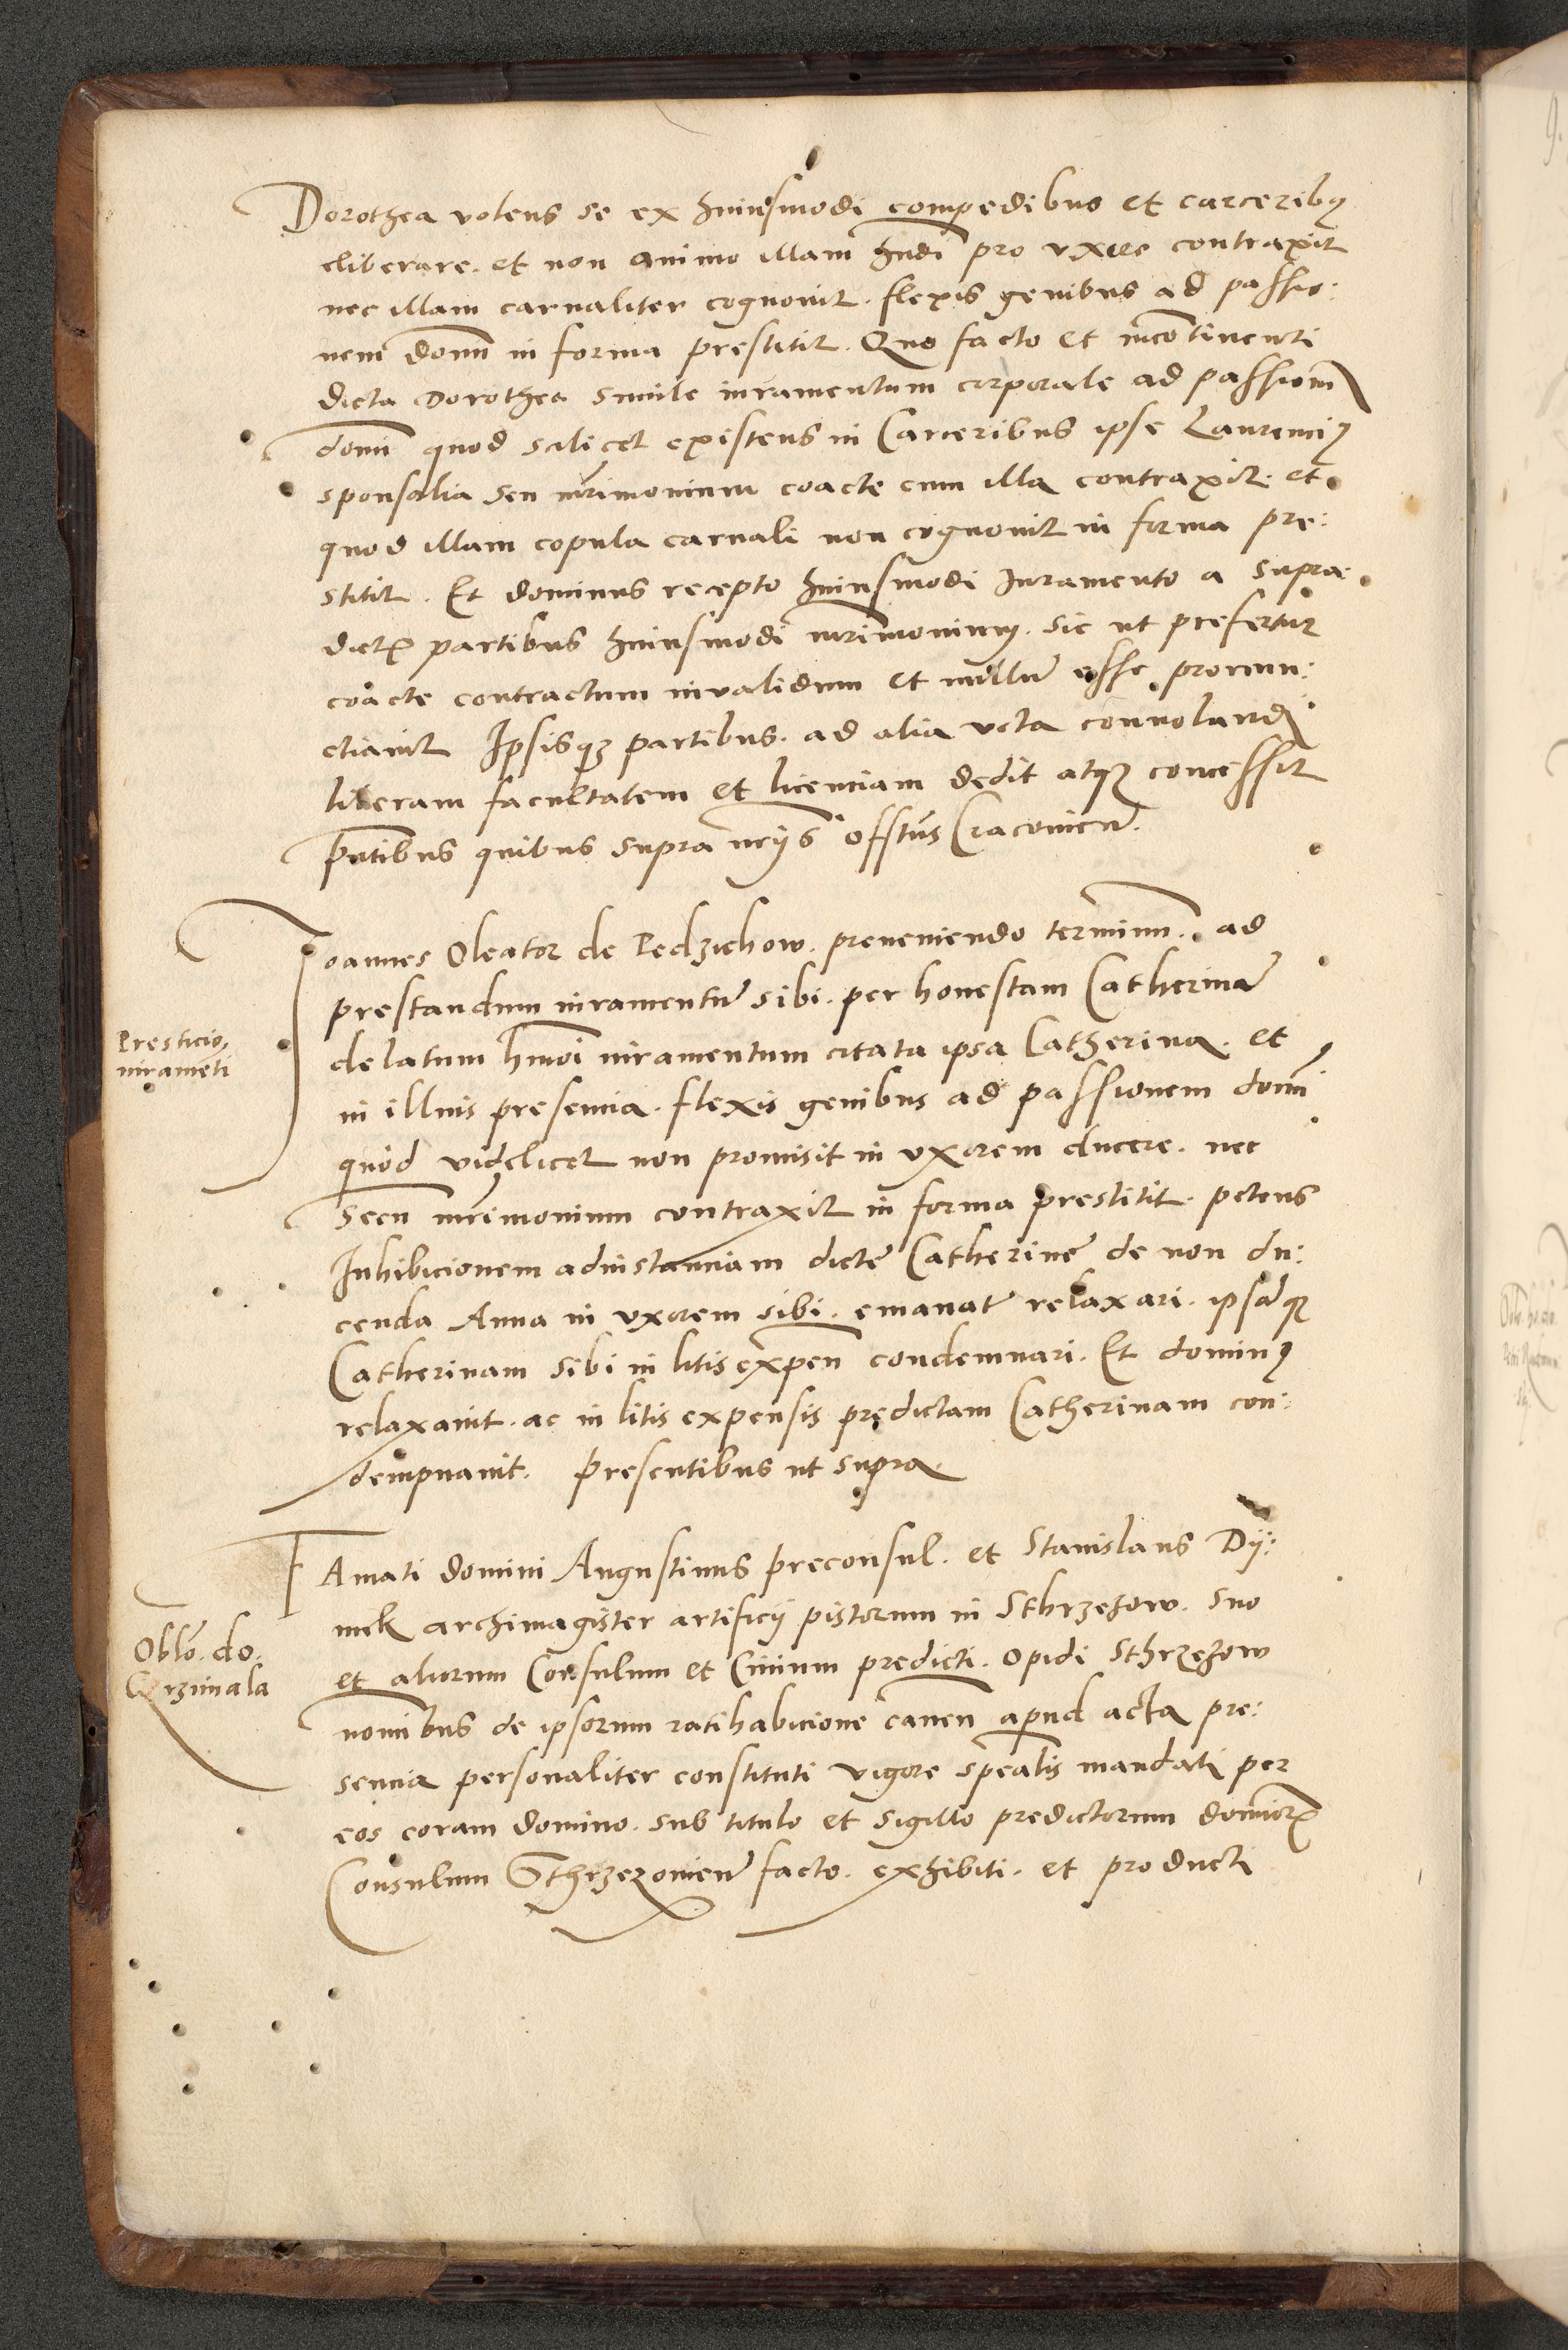 Dorothea volens se ex huiusmodi compedibus et carceribus
eliberare. et non animo illam hndi pro uxore contraxit
nec illam carnaliter cognovit. flexis genibus ad passio:
nem domi in forma prestitit. Quo facto et incontinenti
dicta Dorothea simile iuramentum corporale ad passionem
domi quod scilicet existens in Carceribus ipse Laurencius
sponsalia seu mrimonium coacte cum illa contraxit. et
quod illam copula carnali non cognovit in forma pre:
stitit. Et dominus recepto huiusmodi Iuramento a supra
dictis partibus huiusmodi mrimonium. sic ut prefertur
coacte contractum invalidum et nullum esse pronun:
ctiavit Ipsisque partibus. ad alia vota convolandi
liberam facultatem et licenciam dedit atque concessit
pntibus quibus supra nrijs offtus Cracovien.
Joannes Oleator de Pedzichow. preveniendo terminum. ad
prestandum iuramentum sibi. per honestam Catherinam
delatum hmoi iuramentum citata ipsa Catherina. et
in illius presencia. flexis genibus ad passionem domi
quod videlicet non promisit in uxorem ducere. nec
secu mrimonium contraxit in forma prestitit. petens
Inhibicionem adinstanciam dicte Catherine de non du:
cenda Anna in uxorem sibi. emanatam relaxari. ipsamque
Catherinam sibi in litis expen condemnari. Et dominus
relaxavit. ac in litis expensis predictam Catherinam con:
dempnavit. Presentibus ut supra.
Presticio
iuramenti
Famati domini Augustinus preconsul. et Stanislaus Dy:
mek archimagister artificij pistorum in Sthrzezow. suo
et aliorum Consulum et Civium predicti. Opidi Sthrzezow
nomibus de ipsorum ratihabicione caven apud acta pre:
sencia personaliter constituti vigore spealis mandati per
eos coram domino. sub titulo et sigillo predictorum dominorum
Consulum Sthrzezovien facto. exhibiti. et producti
Oblo. do.
Grzimala